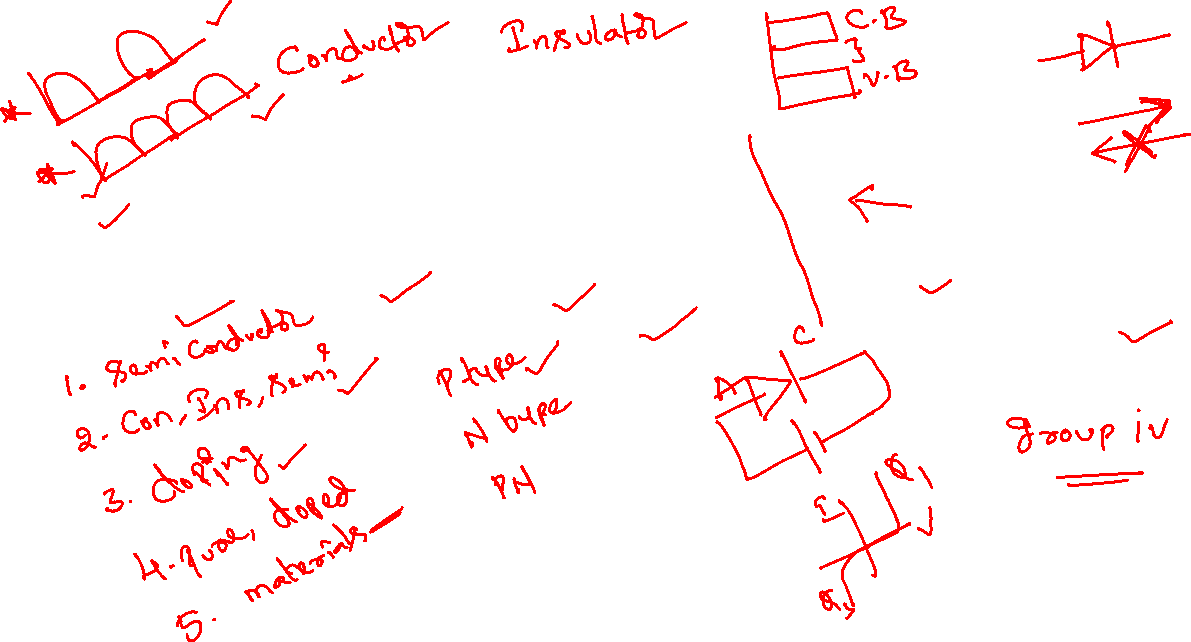 Conductor
Insulator
C.B
3
V.B
1. Semiconductor
2. Con, Ins, semi
3. doping
4. pure, doped
5. materials
P type
N type
PN
C
A
I
Q1
Q3
group iv